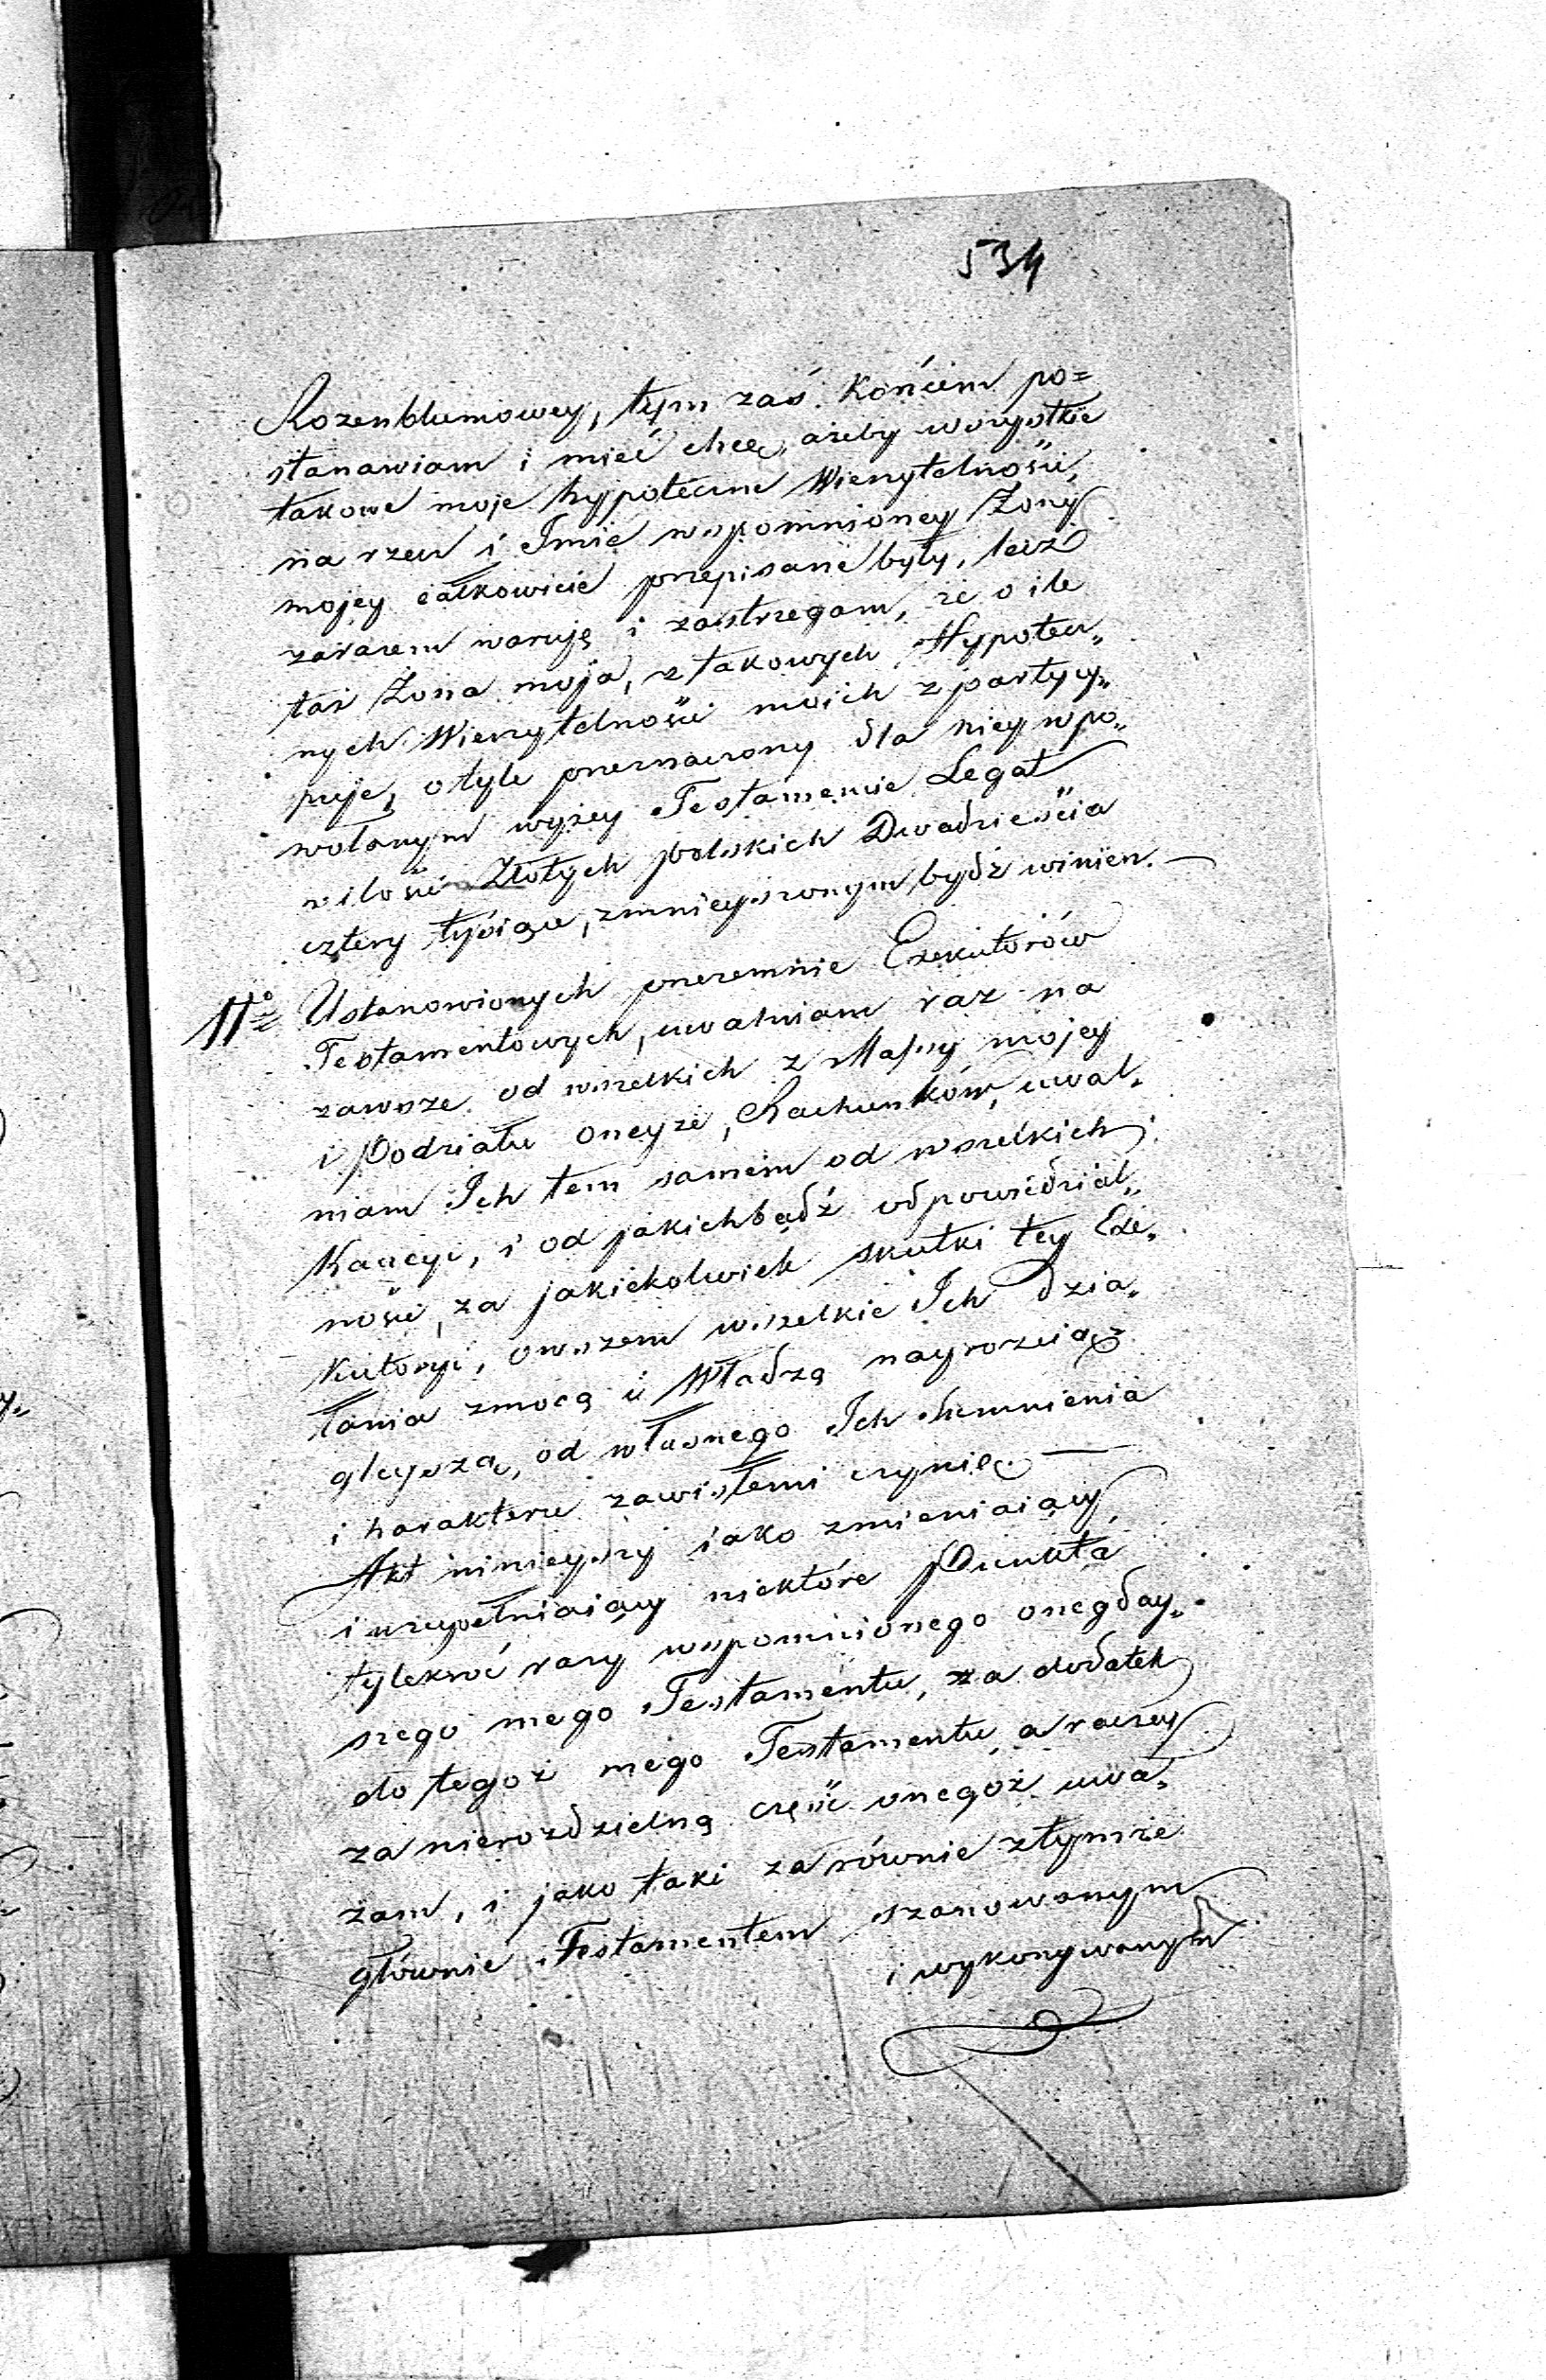 534
Rozenblumowey, tym zaś końcem po=
stanawiam i mieć chcę, ażeby wszystkie
takowe moje hypoteczne Wierzytelności,
na rzecz i Imie wspomnioney Żony
mojey całkowicie przepisane były, lecz
zarazem waruję i zastrzegam, że o ile
taż Żona moja, z takowych Hypotecz„
nych Wierzytelności moich zpartycy„
puje, o tyle przeznaczony dla niey w po„
wołanym wyżey Testamencie Legat
w ilości Złotych polskich Dwadzieścia
cztery tysiące, zmnieyszonym bydź winien. —
11º Ustanowionych przezemnie Exekutorów
Testamentowych, uwalniam raz na
zawsze od wszelkich z Massy mojey
i Podziału oneyże, Rachunków, uwal„
niam Ich tem samem od wszelkich
Kaucyi, i od jakichbądź odpowiedzial„
ności, za jakiekolwiek skutki tey Exe„
kutoryi, owszem wszelkie Ich dzia„
łania z mocą i Władzą nayrozcią„
gleyszą, od własnego Ich sumnienia
i harakteru zawisłemi czynię. —
Akt ninieyszy iako zmieniaiący
i uzupełniaiący niektóre Punkta
tylekroć razy wspomnionego onegday„
szego mego Testamentu, za dodatek
do tegoż mego Testamentu a raczey
za nierozdzielną część onegoż uwa„
żam, i jako taki zarównie z tymże
głównie Testamentem szanowanym
i wykonywanym